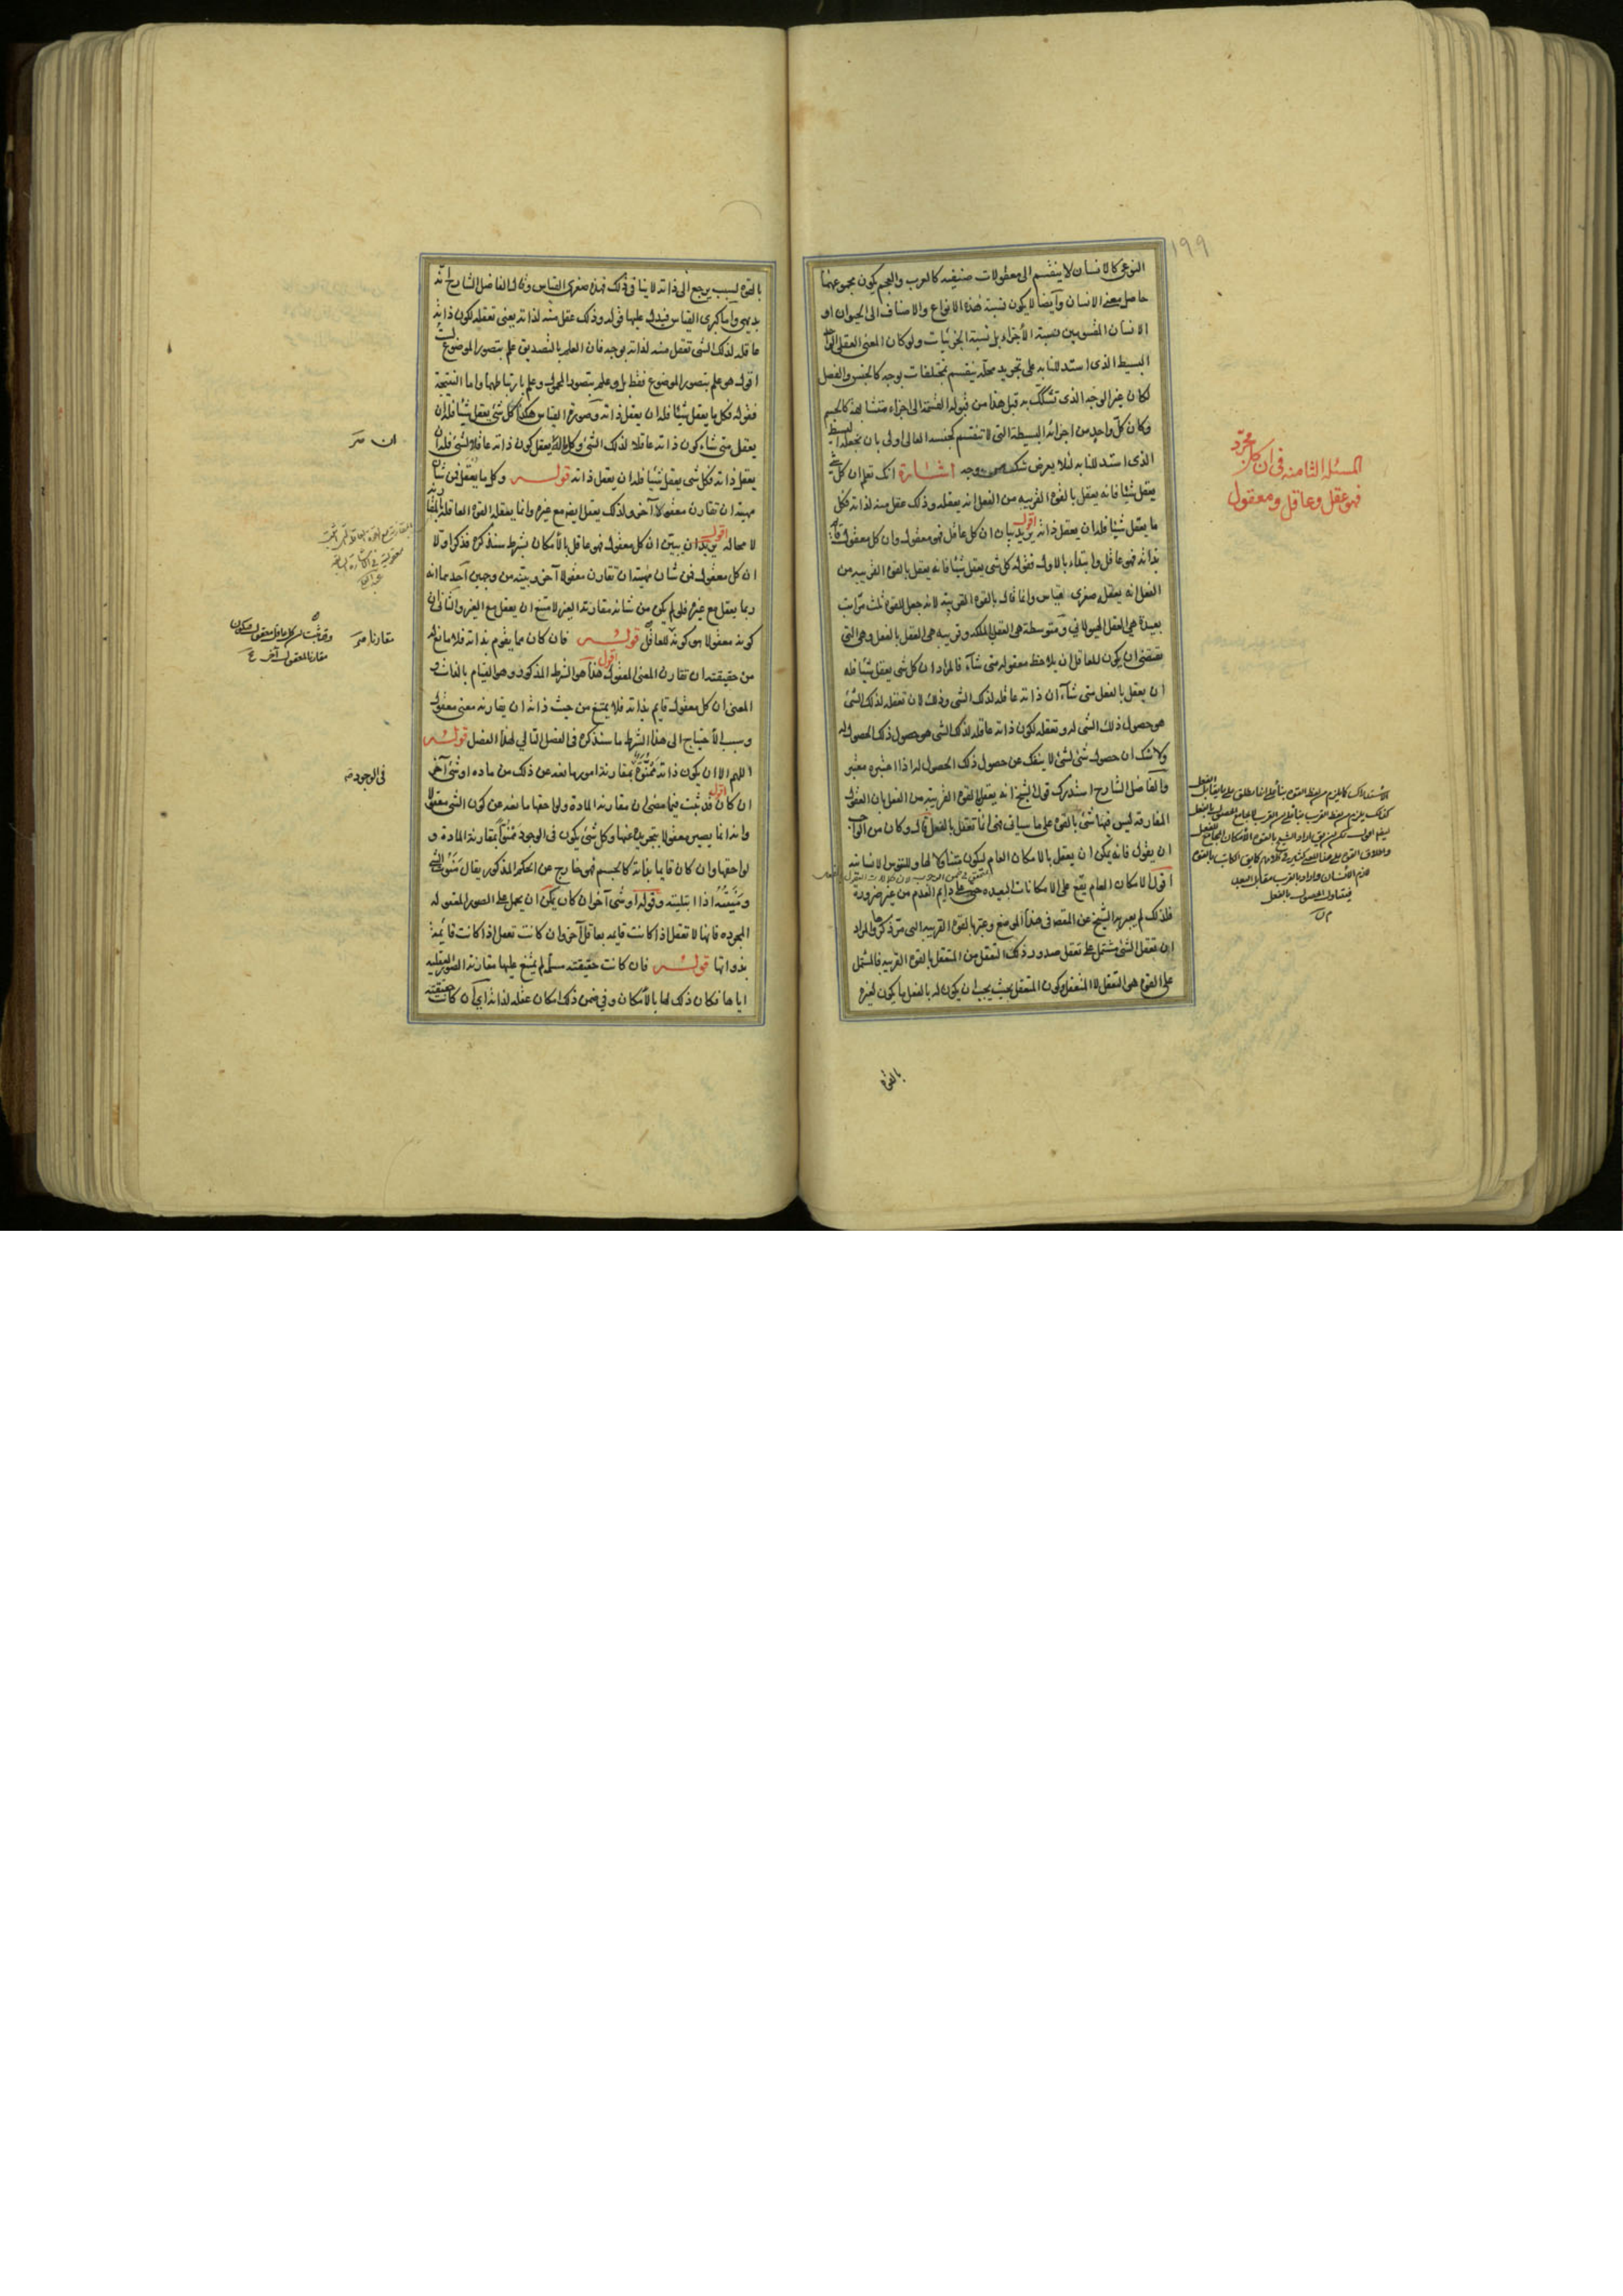 ١٩٩
النوعى كالانسان لا ينقسم الى معقولات صنفيه كالعرب والعجم يكون مجموعهما
حاصل معنى الانسان وآيضا لا يكون نسبة هذه الانواع والاصناف الى الحيوان او
الانسان المقسومين نسبة الأجزاء بل نسبة الجزئيات ولو كان المعنى العقلى الواحد
البسيط الذى استدللنا به على تجريد محله ينقسم بمختلفات بوجه كالجنس والفصل
لكان غير الوجه الذى تشكك به قبل هذا من قبوله القسمة الى اجزاء متشابهة كالجسم
وكان كل واحد من اجزائه البسيطة التى لا تنقسم كجنسه العالى اولى بان نجعله البسيط
الذى استدللنا به لئلا يعرض شك بوجه اشارة انك تعلم ان كل شى
يعقل شيئا فانه يعقل بالقوة القريبه من الفعل انه يعقله وذلك عقل منه لذاته فكل
ما يعقل شيئا فله ان يعقل ذاته اقول يريد بيان ان كل عاقل فهو معقول وان كل معقول قائم
بذاته فهو عاقل وابتداء بالاول فقوله كل شى يعقل شيئا فانه يعقل بالقوة القريبه من
الفعل انه يعقله صغرى قياس وانما قال بالقوة القريبة لانه جعل للقوة ثلث مراتب
بعيدة هى العقل الهيولانى ومتوسطة هى العقل بالملكه وقريبه هى العقل بالفعل وهى التى
تقتضى ان يكون للعاقل ان يلاحظ معقوله متى شآء فالمراد ان كل شى يعقل شيئا فله
ان يعقل بالفعل متى شآء ان ذاته عاقله لذلك الشى وذلك لان تعقله لذلك الشئ
هو حصول ذلك الشى له وتعقله لكون ذاته عاقله لذلك الشى هو حصول ذلك الحصول له
ولا شك ان حصول شئ لشئ لا ينفك عن حصول ذلك الحصول له اذا اعتبره معتبر
والفاضل الشارح استدرك قول الشيخ انه يعقل بالقوة القريبة من الفعل بان العقول
المفارقه ليس فيها شئ بالقوة على ما سياتى فهى انما تعقل بالفعل قال وكان من الواجب
ان يقول فانه يمكن ان يعقل بالامكان العام ليكون متناولا لها وللنفوس الانسانية
اقول الامكان العام يقع على الامكانات البعيده حتى على دايم العدم من غير ضرورة
فلذلك لم يعبر به الشيخ عن المقصود فى هذا الموضع وعبر بالقوة القريبه التى مر ذكرها والمراد
ان تعقل الشئ مشتمل على تعقل صدور ذلك التعقل من المتعقل بالقوة القريبه فالمشتمل
على القوة هو التعقل لا المتعقل وكون المتعقل بحيث يجب ان يكون له بالفعل ما يكون لغيره
بالقوة
المسئله الثامنه فى ان كل مجرد
فهو عقل وعاقل ومعقول
بالقوة لسبب يرجع الى ذاته لا ينافى ذلك فهذه صغرى القياس وقال الفاضل الشارح انه
بديهى وآما كبرى القياس فيدل عليها قوله وذلك عقل منه لذاته يعنى تعقله لكون ذاته
عاقله لذلك الشى تعقل منه لذاته بوجه فان العلم بالتصديق علم بتصور الموضوع لست
اقول هو علم بتصور الموضوع فقط بل وعلم بتصور المحمول وعلم بارتباطهما واما النتيجة
فقوله فكل ما يعقل شيئا فله ان يعقل ذاته وصورة القياس هكذا كل شئ يعقل شيئا فله ان
يعقل متى شاء كون ذاته عاقلا لذلك الشئ وكل ما له ان يعقل كون ذاته عاقلا لشئ فله ان
يعقل ذاته فكل شى يعقل شيئا فله ان يعقل ذاته قوله وكل ما يعقل فمن شان
مهيته ان تقارن معقولا آخر ولذلك يعقل ايضا مع غيره وانما يعقله القوة العاقله بالمقارنة
لا محاله اقول يريد ان يبين ان كل معقول فهو عاقل بالأمكان بشرط سنذكره فذكر اولا
ان كل معقول فمن شان مهيته ان تقارن معقولا آخر وبينه من وجهين آحدهما انه
ربما يعقل مع غيره فلو لم يكن من شانه مقارنة الغير لامتنع ان يعقل مع الغير والثانى ان
كونه معقولا هو كونه للعاقل قوله فان كان مما يقوم بذاته فلا مانع له
من حقيقته ان تقارن المعنى المعقول اقول هذا هو الشرط المذكور وهو القيام بالذات و
المعنى ان كل معقول قايم بذاته فلا يمتنع من حيث ذاته ان يقارنه معنى معقول
وسبب الأحتياج الى هذا الشرط ما سنذكره فى الفصل التالى لهذا الفصل قوله
اللهم الا ان يكون ذاته ممنوة بمقارنة امور مانعه عن ذلك من ماده او شئ آخر
ان كان اقول قد ثبت فيما مضى ان مقارنة المادة ولواحقها مانعه عن كون الشى معقولا
وانه انما يصير معقولا بتجريده عنها وكل شئ يكون فى الوجود ممنوا بمقارنة المادة و
لواحقها وان كان قايما بذاته كالجسم فهو خارج عن الحكم المذكور يقال منوت الشى
ومنيته اذا ابتليته وقوله او شى آخر ان كان يمكن ان يحمل على الصور المعقوله
المجرده فانها لا تعقل اذا كانت قايمه بعاقل آخر وان كانت تعقل اذا كانت قائمة
بذواتها قوله فان كانت حقيقته مسلمة لم يمتنع عليها مقارنة الصور العقليه
اياها فكان ذلك لها بالأمكان وفى ضمن ذلك امكان عقله لذاته اى ان كانت حقيقته
مقارنا
وقد ثبت ان كل عاقل معقول فيكون
مقارنا لمعقول آخر
فى الوجود